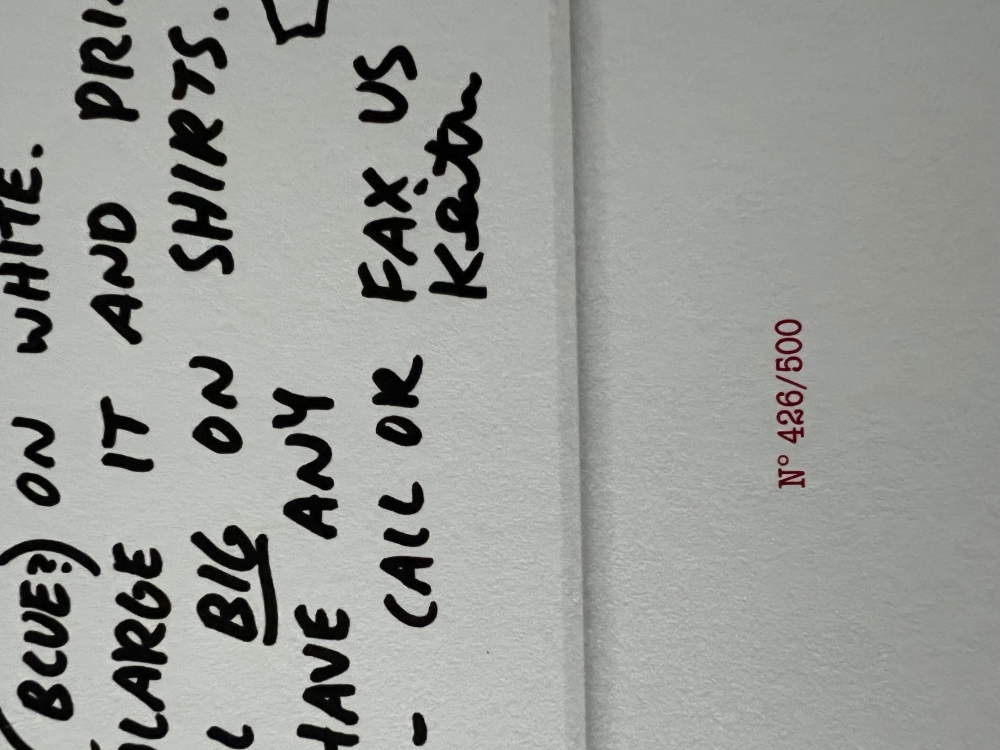 BLUE?) ON WHITE.
LARGE IT AND PRI
BIG ON SHIRTS.
HAVE ANY
- CALL OR FAX US
Keith
N° 426/500